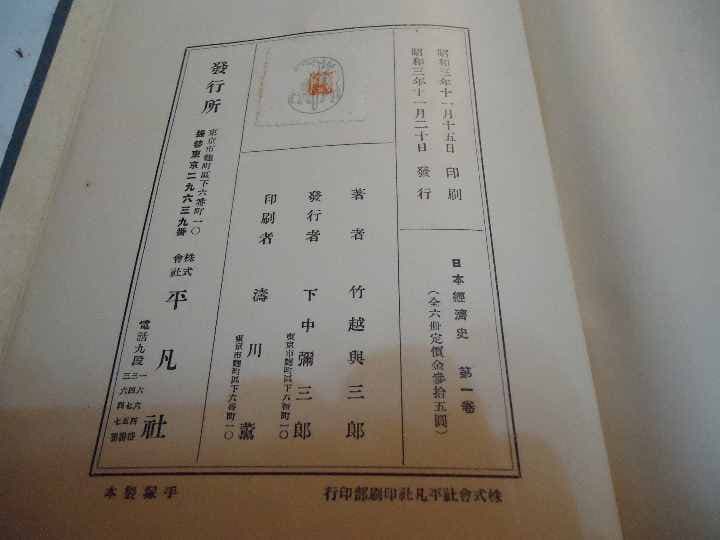 昭和三年十一月十五日 印刷
昭和三年十一月二十日 發行
日本經濟史 第一卷
(全六册定價金參拾五圓)
著者 竹越與三郎
發行者 下中彌三郎
東京市麹町區下六番町一〇
印刷者 濤川薫
東京市麹町區下六番町一〇
發行所
東京市麹町區下六番町一〇
振替東京二九六三九番
株式會社 平凡社
電話九段
株式會社平凡社印刷部印行
手塚製本